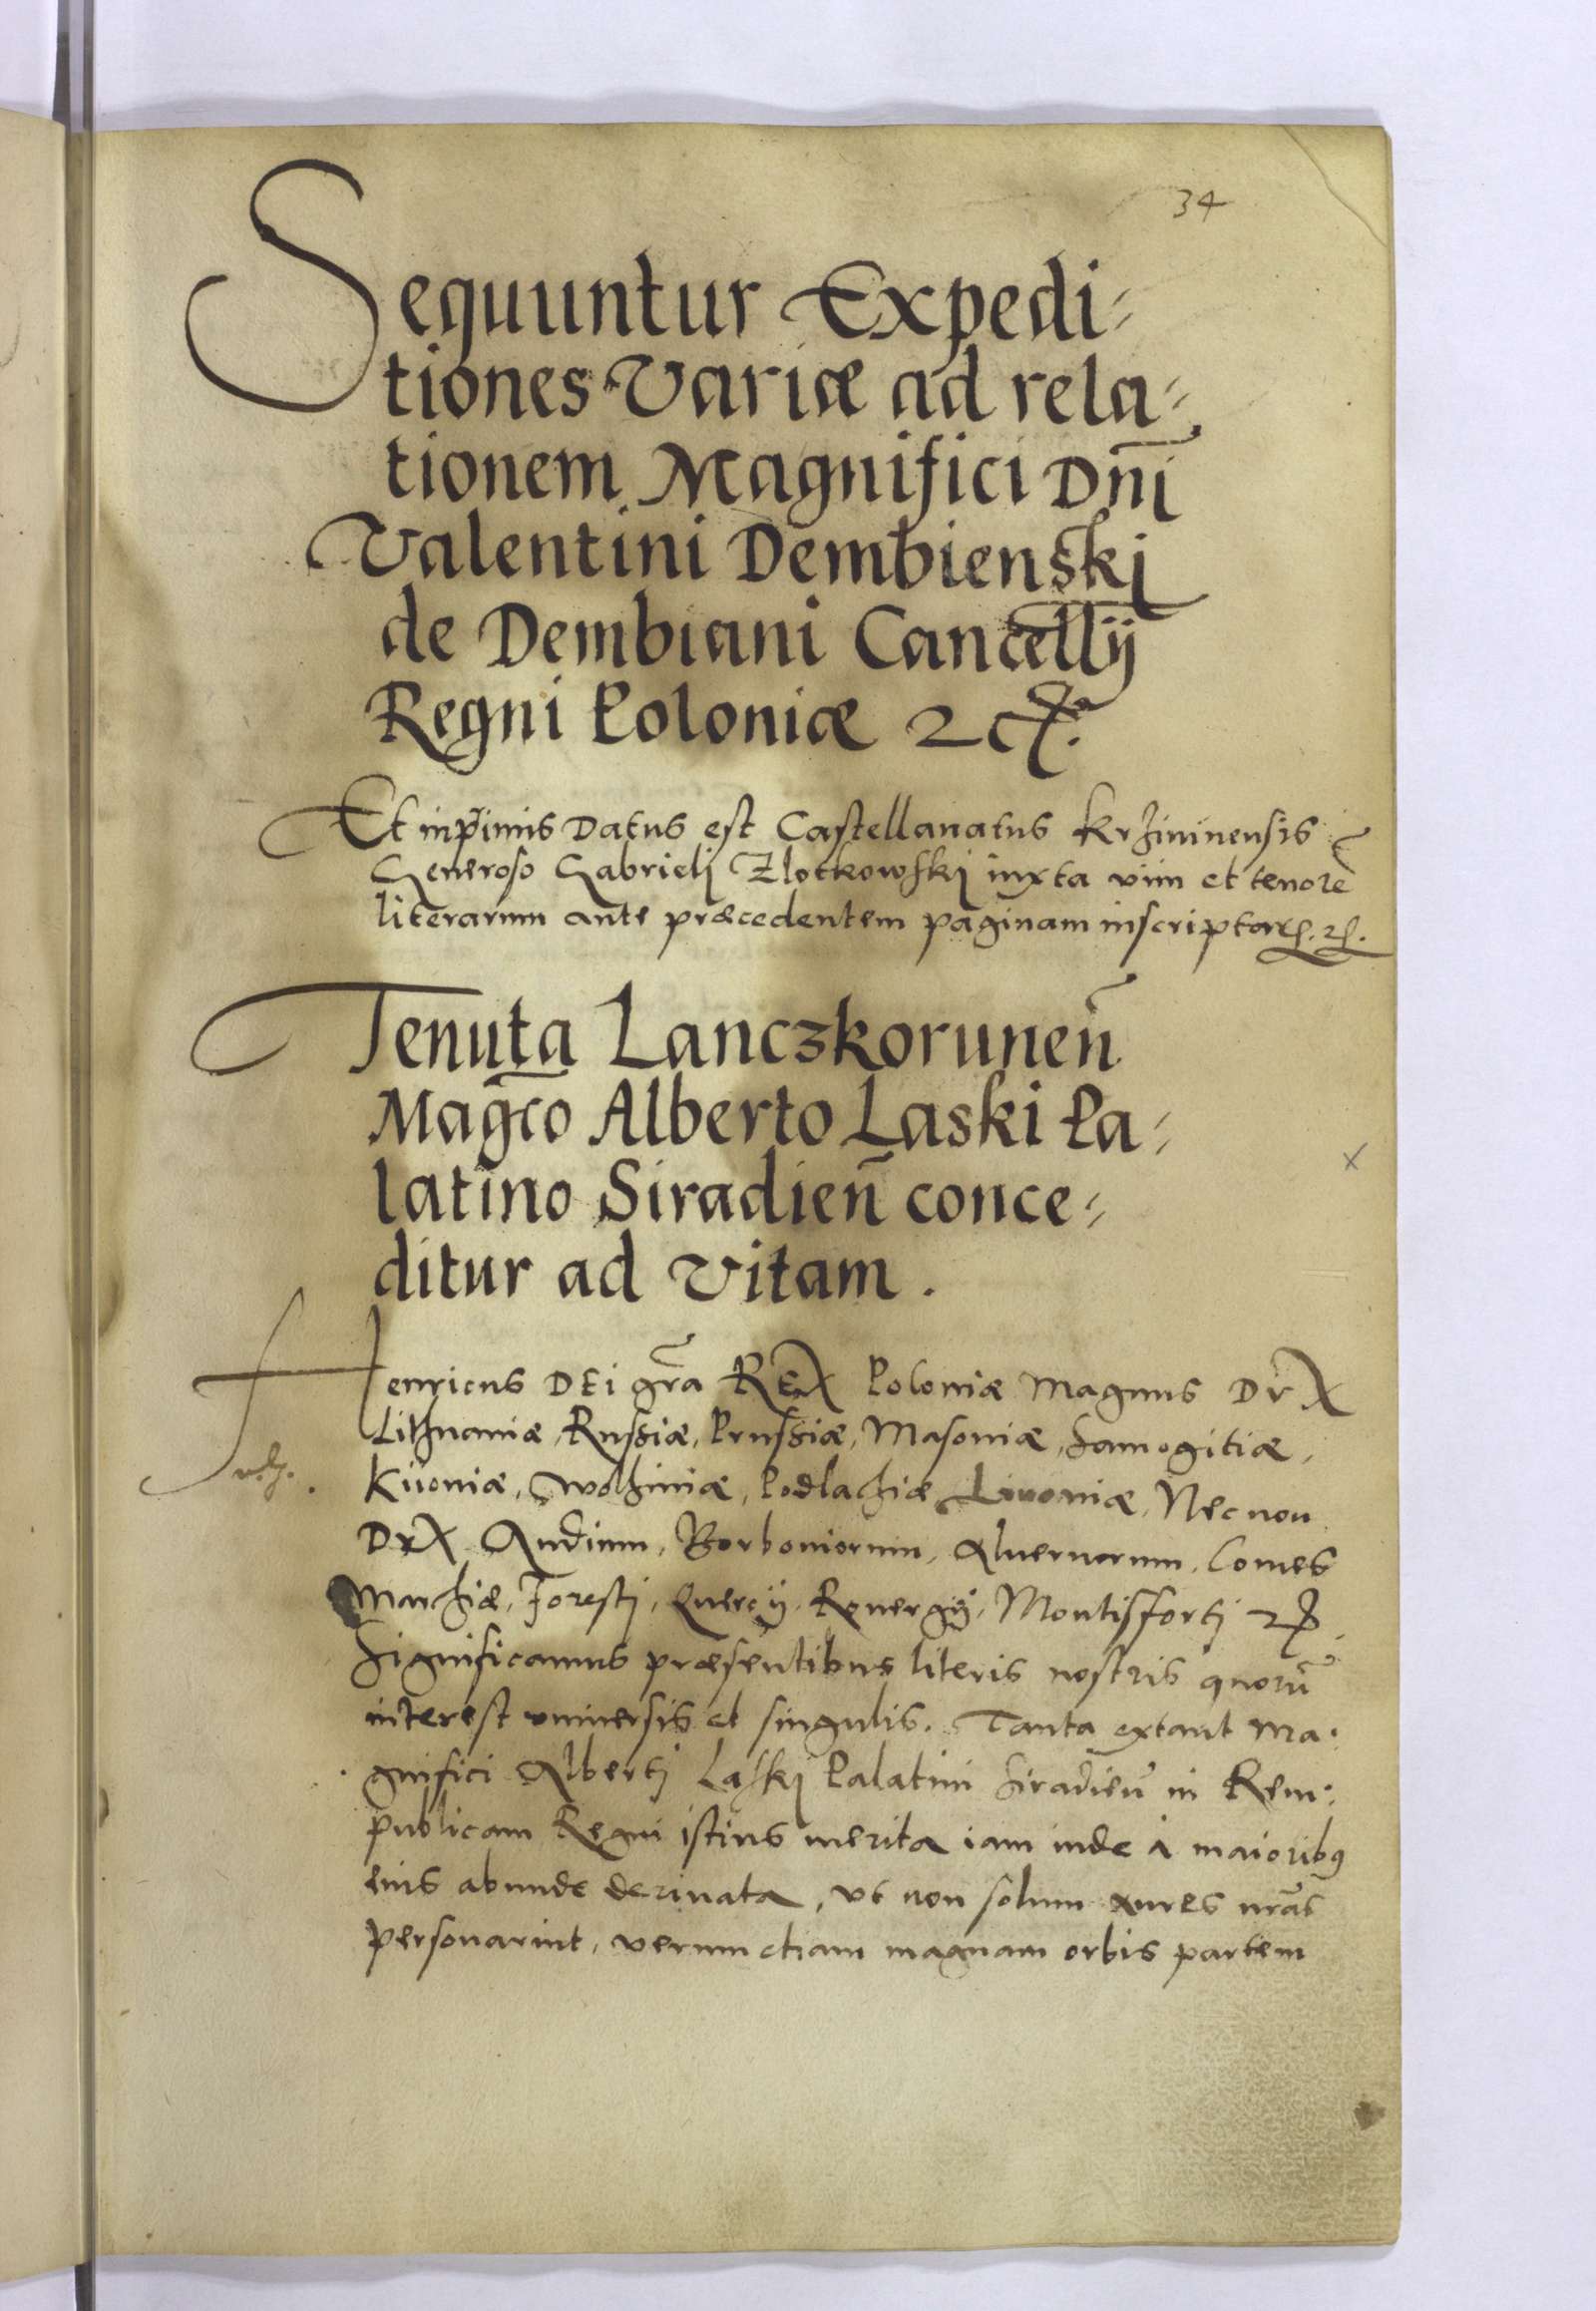 34
Sequuntur Expedi-
tiones Variæ ad rela-
tionem Magnifici Dn̄i
Valentini Dembienskj
de Dembiani Cancellij
Regni Poloniæ &c̃.
Et inprimis Datus est Castellanatus Krzininensis
Generoso Gabrielj Zlotkowskj iuxta vim et tenorē
literarum ante præcedentem paginam inscriptar.
Tenuta Lanczkorunen̄
Mag̅co Alberto Laski Pa-
latino Siradien̄ conce-
ditur ad vitam.
Henricus DEi gr̄a REX Poloniæ Magnus DVX
Lithuaniæ, Russiæ, Prussiæ, Masoniæ, Samogitiæ,
Kiioniæ, Wolhiniæ, Podlachiæ Liuoniæ, Nec non
DVX Andium, Borboniorum, Aluernorum, Comes
Marchiæ, Forestj, Quercij, Rouergij, Montisfortj &c
Significamus præsentibus literis nostris quorū
interest vniuersis et singulis. Tanta extant Ma-
gnifici Albertj Laskj Palatini Siradien̄ in Rem-
publicam Regni istius merita iam inde à maioribꝰ
eius abunde deriuata, vt non solum aures nrās
personarint, verum etiam magnam orbis partem